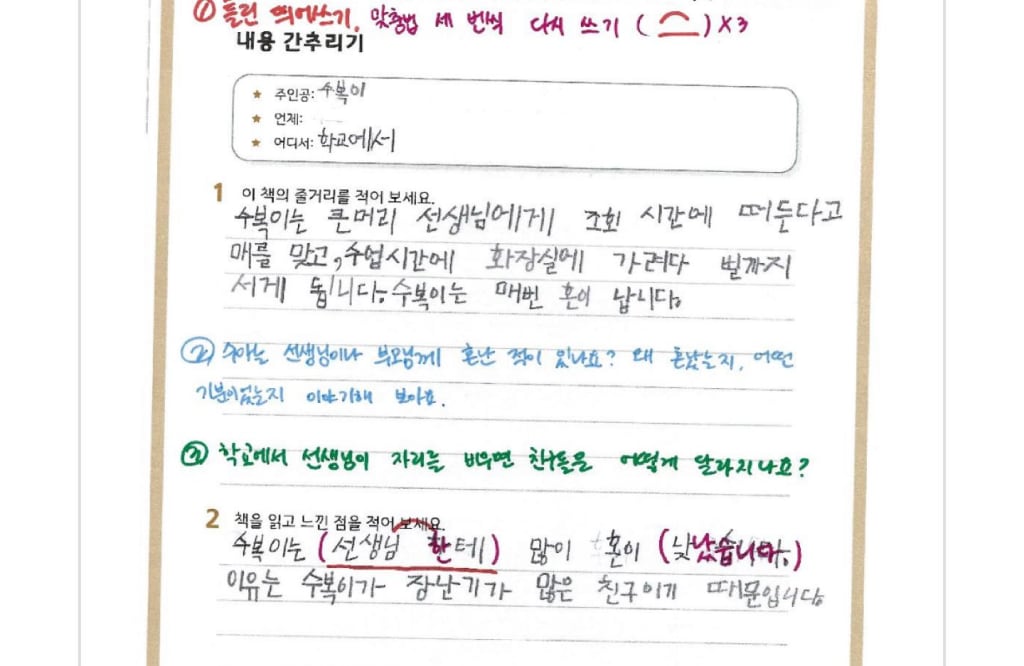 ① 틀린 띄어쓰기, 맞춤법 세 번씩 다시 쓰기 ( ) X3
내용 간추리기
★ 주인공: 수복이
★ 언제:
★ 어디서: 학교에서
1 이 책의 줄거리를 적어 보세요.
수복이는 큰머리 선생님에게 조회 시간에 떠든다고
매를 맞고, 수업시간에 화장실에 가려다 벌까지
서게 됩니다. 수복이는 매번 혼이 납니다.
② 수아는 선생님이나 부모님께 혼난 적이 있나요? 왜 혼났는지, 어떤
기분이었는지 이야기해 보아요.
③ 학교에서 선생님이 자리를 비우면 친구들은 어떻게 달라지나요?
2 책을 읽고 느낀 점을 적어 보세요.
수복이는 (선생님 한테) 많이 혼이 (났습니다.)
이유는 수복이가 장난기가 많은 친구이기 때문입니다.